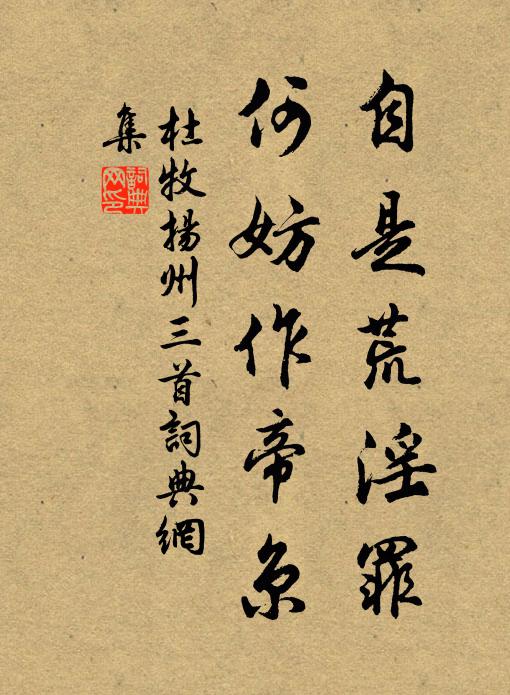 自是荒淫罪
何妨作帝京
杜牧揚州三首詞典網
集
詞典
网印